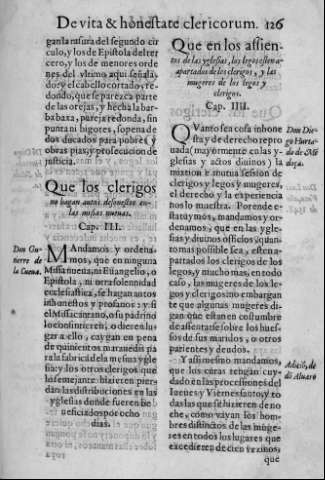 De vita & honestate clericorum. 126
gan la rasura del segundo cir
culo, y los de Epistola del ter
cero, y los de menores orde
nes del vltimo aqui señala
do: y el cabello cortado, re-
dondo, que se parezca parte
de las orejas, y hecha la bar-
ba baxa, pareja redonda, sin
punta ni bigotes, so pena de
dos ducados para pobres, y
obras pias, y prosecucion de
justicia.
Que los clerigos
no hagan autos desonestos en-
las missas nueuas.
Cap. III.
Don Gu-
tierre de
la Cueua.
Mandamos y ordena-
mos, que en ninguna
Missa nueua, ni Euangelio, o
Epistola, ni otra solennidad
ecclesiastica, se hagan autos
inhonestos y prophanos: y si
el Missacantano, o su padrino
lo consintieren, o dieren lu-
gar a ello, caygan en pena
de quinientos marauedis pa
ra la fabrica dela mesma ygle
sia: y los otros clerigos que
lo semejante hizieren pier-
dan las distribuciones en las
yglesias donde fueren be
neficiados por ocho
dias.
Que en los assien-
tos de las yglesias, los legos esten a-
partados de los clerigos, y las
mugeres de los legos y
clerigos.
Cap. IIII.
Don Die-
go Hurta-
do de Mẽ
doça.
QVanto sea cosa inhone
sta, y de derecho repro
uada (mayormente en las y-
glesias y actos diuinos) la
mixtion e mutua session de
clerigos y legos y mugeres,
el derecho y la experiencia
nos lo muestra. Por ende e-
statuymos, mandamos y or-
denamos, que en las ygle-
sias y diuinos officios, quan-
to mas possible sea, esten a-
partados los clerigos de los
legos, y mucho mas, en todo
caso, las mugeres de los le-
gos y clerigos: no embargan
te que algunas mugeres di-
gan que estan en costumbre
de assentarse sobre los hues-
sos de sus maridos, o otros
parientes y deudos.
Y assimesmo mandamos,
que los curas tengan cuy-
dado en las processiones del
Iueues y Viernes santo, y to
das las que se hizieren de no
che, como vayan los hom-
bres distinctos de las muge-
res en todos los lugares que
excedieren de cien vezinos;
que